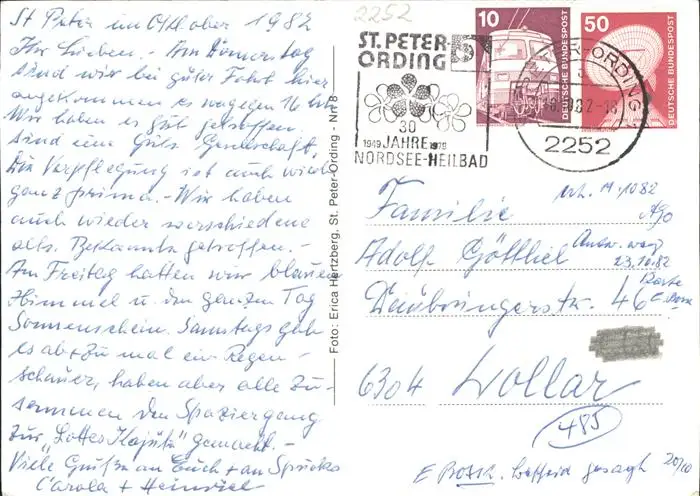 St Peter im Oktober 1982
Ihr Lieben! - Am Donnerstag
sind wir bei guter Fahrt hier
angekommen es war gegen 16 Uhr
Wir haben es gut getroffen.
sind eine gute Gemeinschaft,
Die Verpflegung ist auch wieder
ganz prima. - Wir haben
auch wieder verschiedene
alte Bekannte getroffen. -
Am Freitag hatten wir blauen
Himmel u. den ganzen Tag
Sonnenschein. Samstags gab
es ab + zu mal ein Regen-
schauer, haben aber alle zu-
sammen den Spaziergang
zur "Lottes Kajüte" gemacht. -
Viele Grüße an Euch + an
Carola + Heinrich
Foto: Erica Hertzberg, St. Peter-Ording - Nr. 8
2252
ST. PETER-
ORDING
30
1949 JAHRE 1979
NORDSEE-HEILBAD
10
DEUTSCHE BUNDESPOST
50
DEUTSCHE BUNDESPOST
2252
Familie
Adolf Göttlich
46
6304 Lollar
485
23.10.82
Karte
20/10